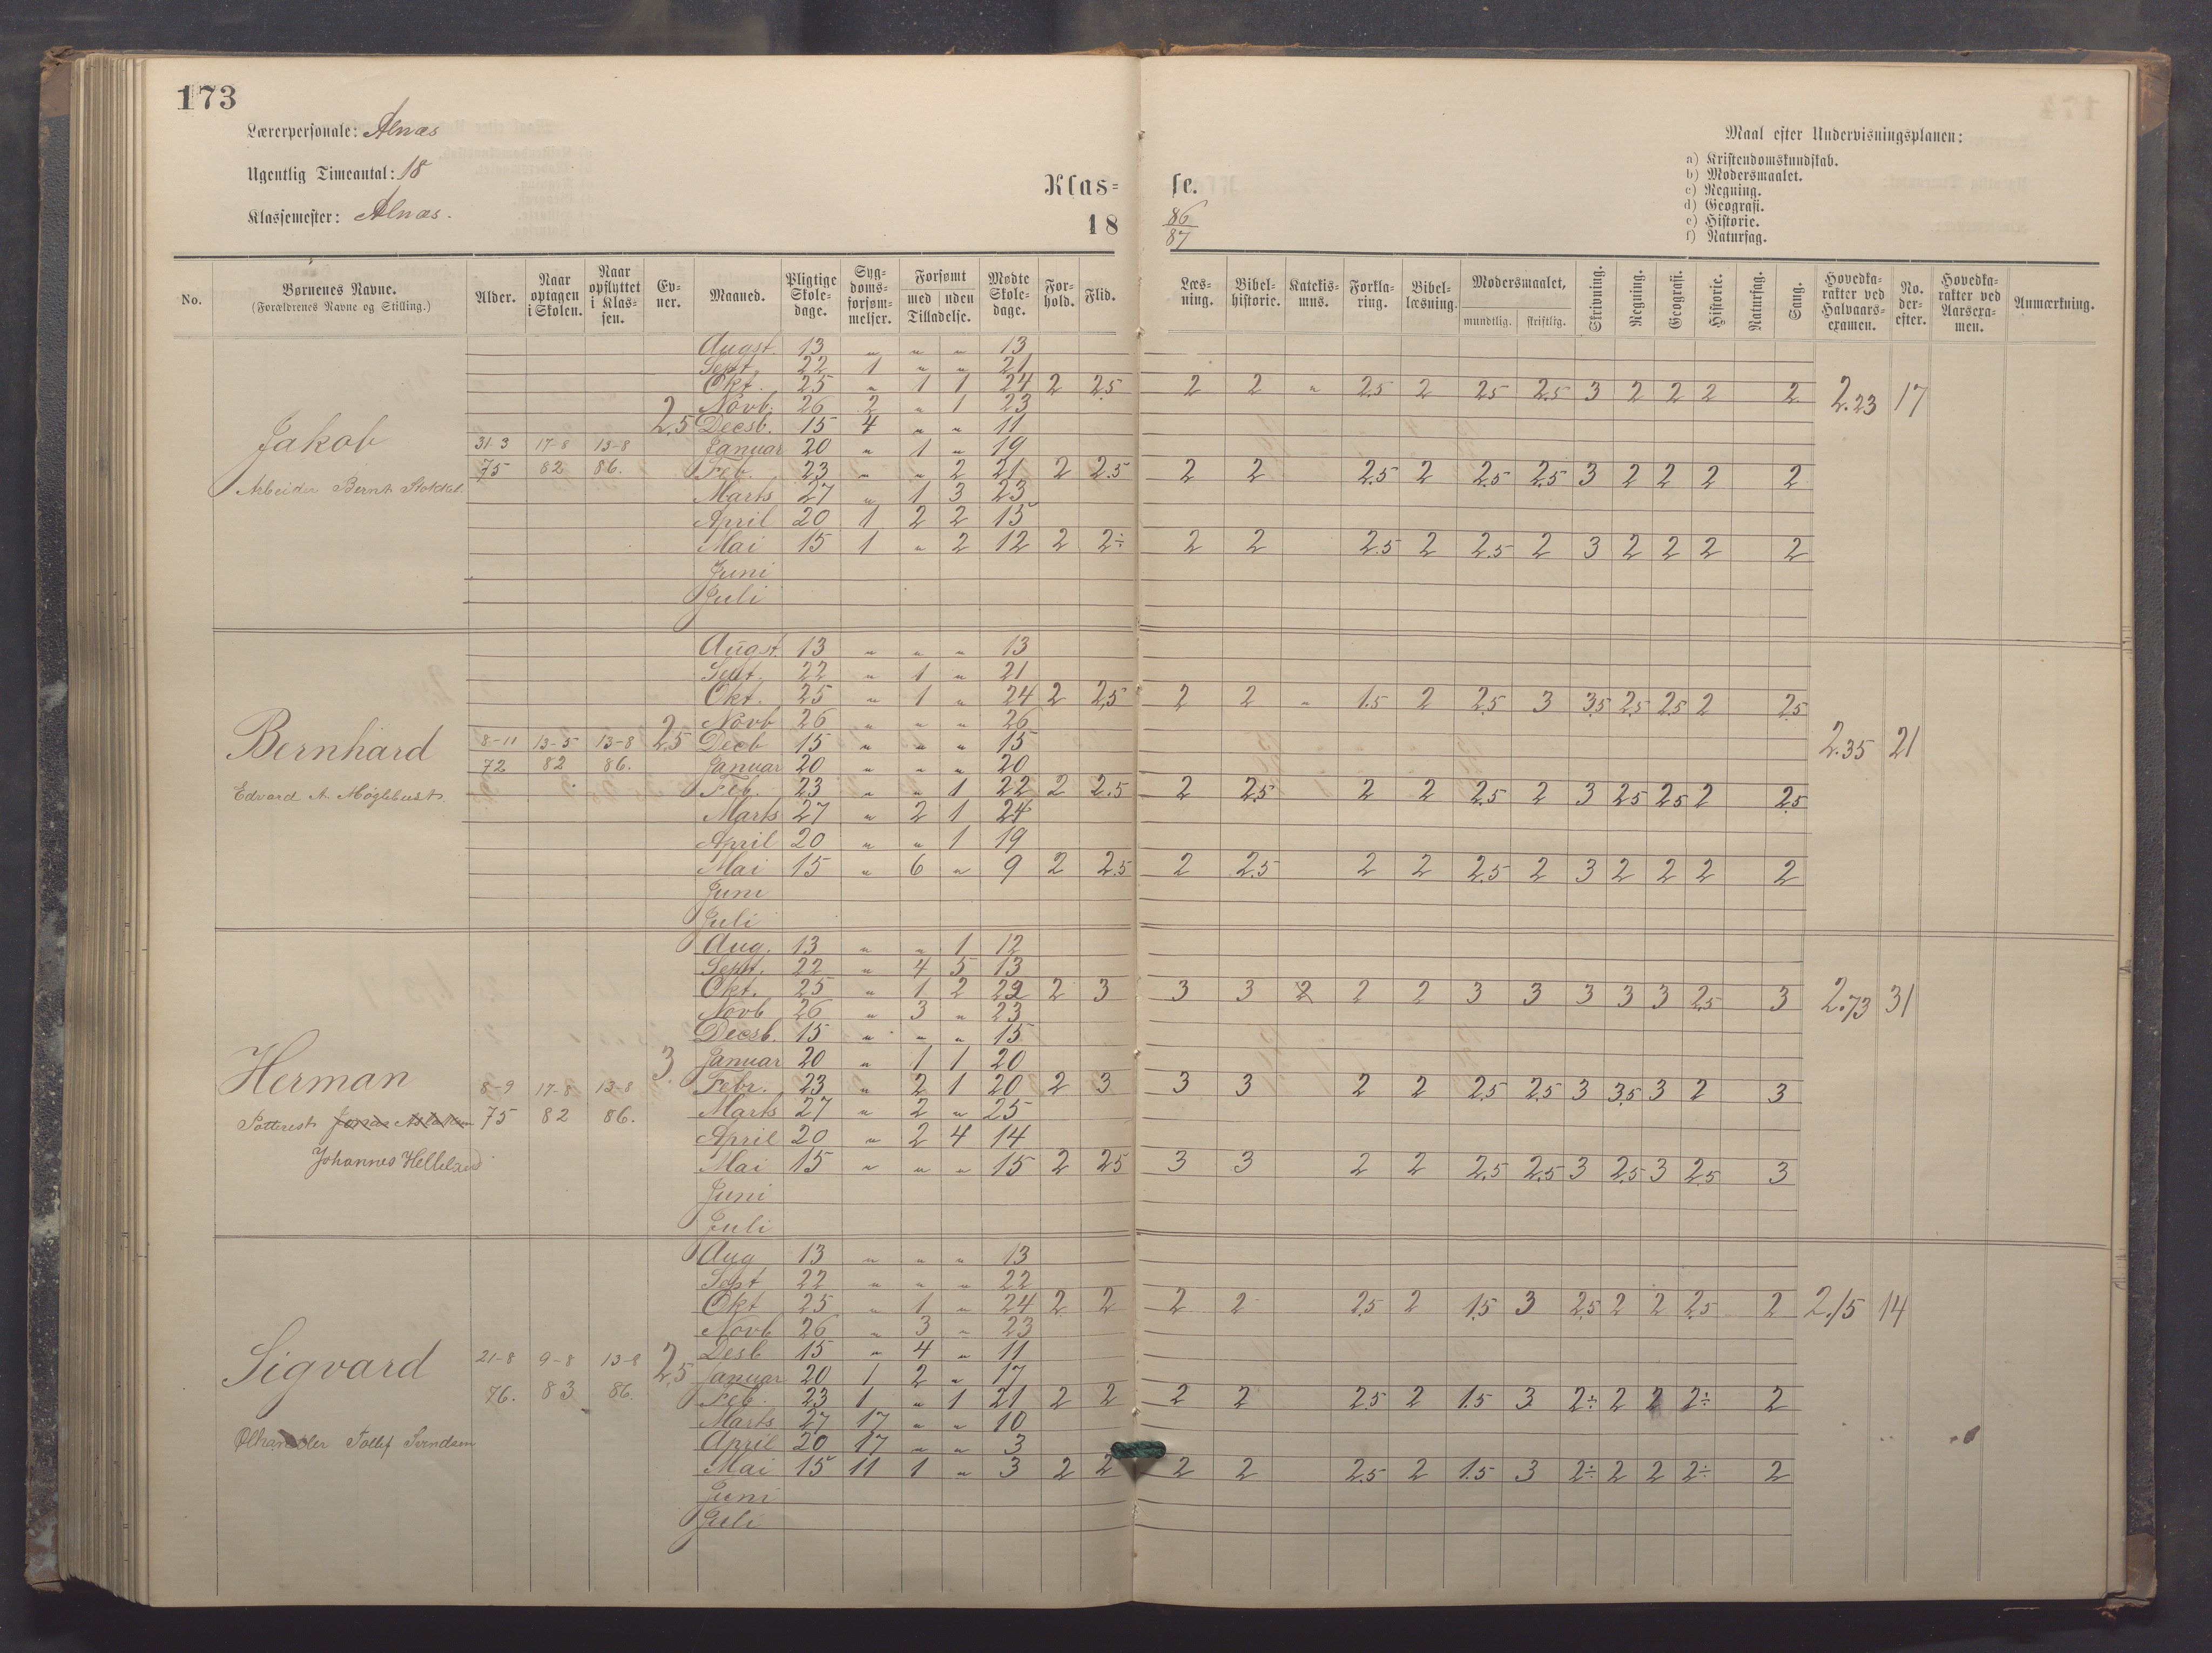 173
Lærerpersonale: Alnæs
Ugentlig Timeantal: 18
Klassemester: Alnæs.
Klas= se.
18 86/87
Maal efter Undervisningsplanen:
a) Kristendomskundskab.
b) Modersmaalet.
c) Regning.
d) Geografi.
e) Historie.
f) Naturfag.
No. Børnenes Navne. (Forældrenes Navne og Stilling.) Alder. Naar optagen i Skolen. Naar opflyttet i Klassen. Evner. Maaned. Pligtige Skoledage. Sygdomsforsømmelser. Forsømt med uden Tilladelse. Mødte Skoledage. Forhold. Flid. Læsning. Bibelhistorie. Katekismus. Forklaring. Bibellæsning. Modersmaalet, mundtlig. skriftlig. Skrivning. Regning. Geografi. Historie. Naturfag. Sang. Hovedkarakter ved Halvaarsexamen. No. derefter. Hovedkarakter ved Aarsexamen. Anmærkning.
Augst. 13 " " " 13
Sept. 22 1 " " 21
Okt. 25 " 1 1 24 2 2.5 2 2 " 2.5 2 2.5 2.5 3 2 2 2 2 2.23 17
Novb. 26 2 " 1 23
2.5 Decsb. 15 4 " " 11
Jakob 31-3 17-8 13-8 Januar 20 " 1 " 19
75 82 86. Feb. 23 " " 2 21 2 2.5 2 2 2.5 2 2.5 2.5 3 2 2 2 2
Arbeider Bernt
Marts 27 " 1 3 23
April 20 1 2 2 15
Mai 15 1 " 2 12 2 2÷ 2 2 2.5 2 2.5 2 3 2 2 2 2
Juni
Juli
Augst. 13 " " " 13
Sept. 22 " 1 " 21
Okt. 25 " 1 " 24 2 2.5 2 2 " 1.5 2 2.5 3 3.5 2.5 2.5 2 2.5
Novb 26 " " " 26
Bernhard 8-11 13-5 13-8 2.5 Decb 15 " " " 15 2.35 21
72 82 86. Januar 20 " " " 20
Edvard A. Møglebust.
Feb. 23 " " 1 22 2 2.5 2 2.5 2 2 2.5 2 3 2.5 2.5 2 2.5
Marts 27 " 2 1 24
April 20 " " 1 19
Mai 15 " 6 " 9 2 2.5 2 2.5 2 2 2.5 2 3 2 2 2 2
Juni
Juli
Aug. 13 " " 1 12
Sept. 22 " 4 5 13
Okt. 25 " 1 2 22 2 3 3 3 2 2 2 3 3 3 3 3 2.5 3 2.73 31
Novb 26 " 3 " 23
Decsb. 15 " " " 15
3. Januar 20 " 1 1 20
Herman 8-9 17-8 13-8 Febr. 23 " 2 1 20 2 3 3 3 2 2 2.5 2.5 3 3.5 3 2 3
75 82 86. Marts 27 " 2 " 25
April 20 " 2 4 14
Johannes Helleland
Mai 15 " " " 15 2 2.5 3 3 2 2 2.5 2.5 3 2.5 3 2.5 3
Juni
Juli
Aug 13 " " " 13
Sept 22 " " " 22
Okt 25 " 1 " 24 2 2 2 2 2.5 2 1.5 3 2.5 2 2 2.5 2 2.15 14
Novb 26 " 3 " 23
Sigvard 21-8 9-8 13-8 2.5 Desb 15 " 4 " 11
Januar 20 1 2 " 17
76. 83 86. Feb. 23 1 " 1 21 2 2 2 2 2.5 2 1.5 3 2÷ 2 2 2÷ 2
Marts 27 17 " " 10
Ølhandler Tollef Svendsen
April 20 17 " " 3
Mai 15 11 1 " 3 2 2 2 2 2.5 2 1.5 3 2÷ 2 2 2÷ 2
Juni
Juli